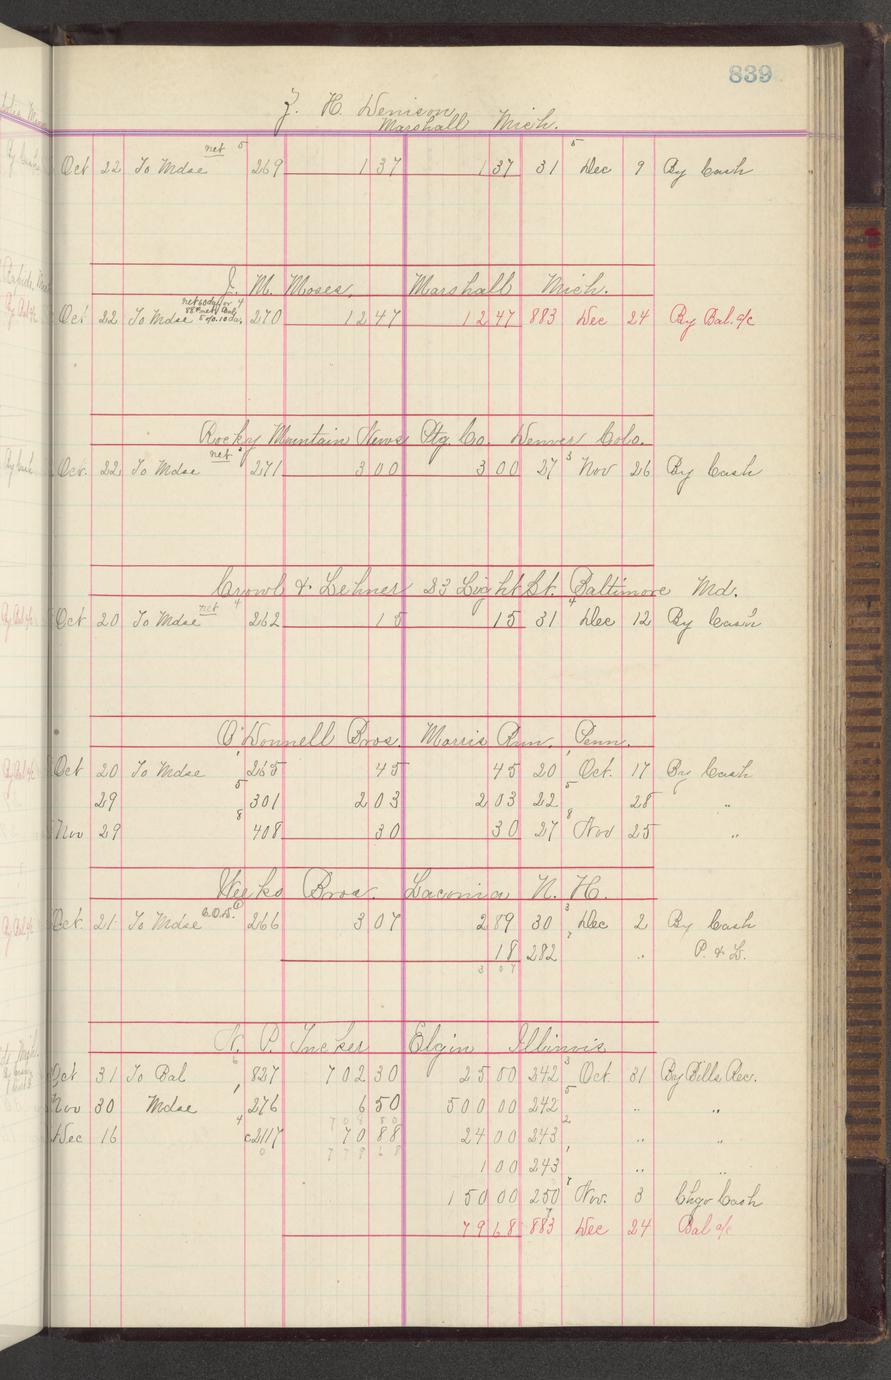 839
Z. H. Denison
Marshall Mich.
Oct 22 To Mdse net 5 269 1 37 1 37 31 5 Dec 9 By Cash
J. M. Moses, Marshall Mich.
Oct 22 To Mdse 4 270 12 47 12 47 883 Dec 24 By Bal. a/c
Rocky Mountain News Ptg. Co. Denver Colo.
Oct. 22 To Mdse net 271 3 00 3 00 27 3 Nov 26 By Cash
Crowl & Lehner 23 Light St. Baltimore Md.
Oct 20 To Mdse net 4 262 15 15 31 4 Dec 12 By Cash
O'Donnell Bros. Morris Run, Penn.
Oct 20 To Mdse 1 265 45 45 20 1 Oct. 17 By Cash
29 5 301 2 03 2 03 22 5 28 "
Nov 29 8 408 30 30 27 8 Nov 25 "
Weeks Bros. Laconia N. H.
Oct. 21 To Mdse C.O.D. 6 266 3 07 2 89 30 3 Dec 2 By Cash
18 282 7 " P. & L.
3 07
N. P. Tucker Elgin Illinois
Oct 31 To Bal 6 827 702 30 25 00 242 3 Oct. 31 By Bills Rec.
Nov 30 Mdse 1 276 6 50 500 00 242 5 " "
708 80
Dec 16 4 c2117 70 88 24 00 243 2 " "
779 68
1 00 243 1 " "
150 00 250 7 Nov. 3 Chgo Cash
79 68 883 7 Dec 24 Bal a/c